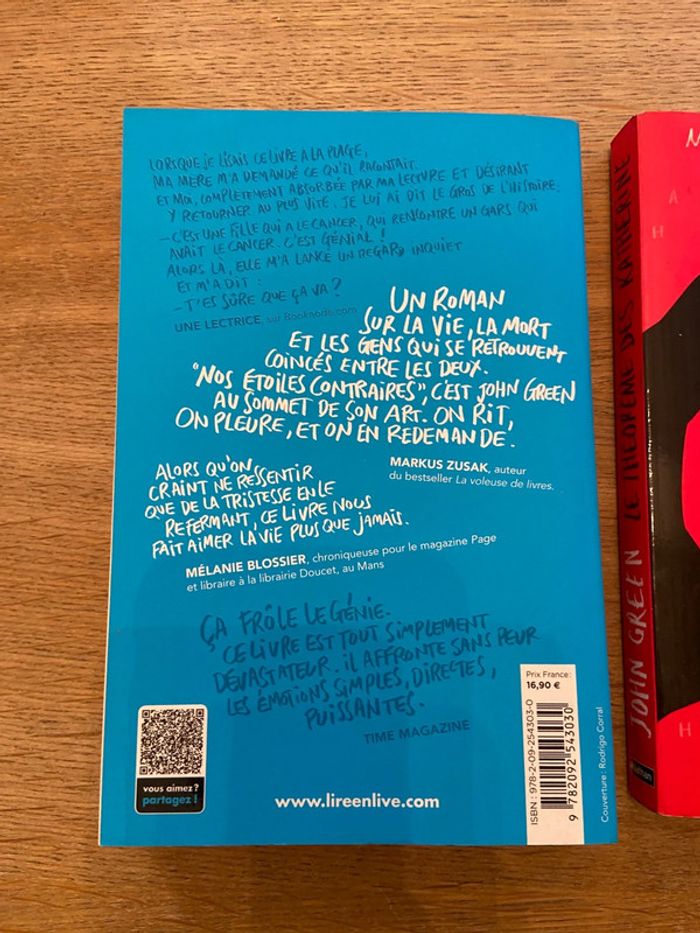 LORSQUE JE LISAIS CE LIVRE À LA PLAGE,
MA MÈRE M'A DEMANDÉ CE QU'IL RACONTAIT.
ET MOI, COMPLÈTEMENT ABSORBÉE PAR MA LECTURE ET DÉSIRANT
Y RETOURNER AU PLUS VITE, JE LUI AI DIT LE GROS DE L'HISTOIRE:
– C'EST UNE FILLE QUI A LE CANCER, QUI RENCONTRE UN GARS QUI
AVAIT LE CANCER. C'EST GÉNIAL !
ALORS LÀ, ELLE M'A LANCÉ UN REGARD INQUIET
ET M'A DIT :
– T'ES SÛRE QUE ÇA VA ?
UNE LECTRICE, sur Booknode.com
UN ROMAN
SUR LA VIE, LA MORT
ET LES GENS QUI SE RETROUVENT
COINCÉS ENTRE LES DEUX.
"NOS ÉTOILES CONTRAIRES", C'EST JOHN GREEN
AU SOMMET DE SON ART. ON RIT,
ON PLEURE, ET ON EN REDEMANDE.
MARKUS ZUSAK, auteur
du bestseller La voleuse de livres.
ALORS QU'ON
CRAINT NE RESSENTIR
QUE DE LA TRISTESSE EN LE
REFERMANT, CE LIVRE NOUS
FAIT AIMER LA VIE PLUS QUE JAMAIS.
MÉLANIE BLOSSIER, chroniqueuse pour le magazine Page
et libraire à la librairie Doucet, au Mans
ÇA FRÔLE LE GÉNIE.
CE LIVRE EST TOUT SIMPLEMENT
DÉVASTATEUR. IL AFFRONTE SANS PEUR
LES ÉMOTIONS SIMPLES, DIRECTES,
PUISSANTES.
TIME MAGAZINE
vous aimez ?
partagez !
www.lireenlive.com
Prix France:
16,90 €
ISBN : 978-2-09-254303-0
9 782092 543030
Couverture : Rodrigo Corral
JOHN GREEN LE THÉORÈME DES KATHERINE
Nathan